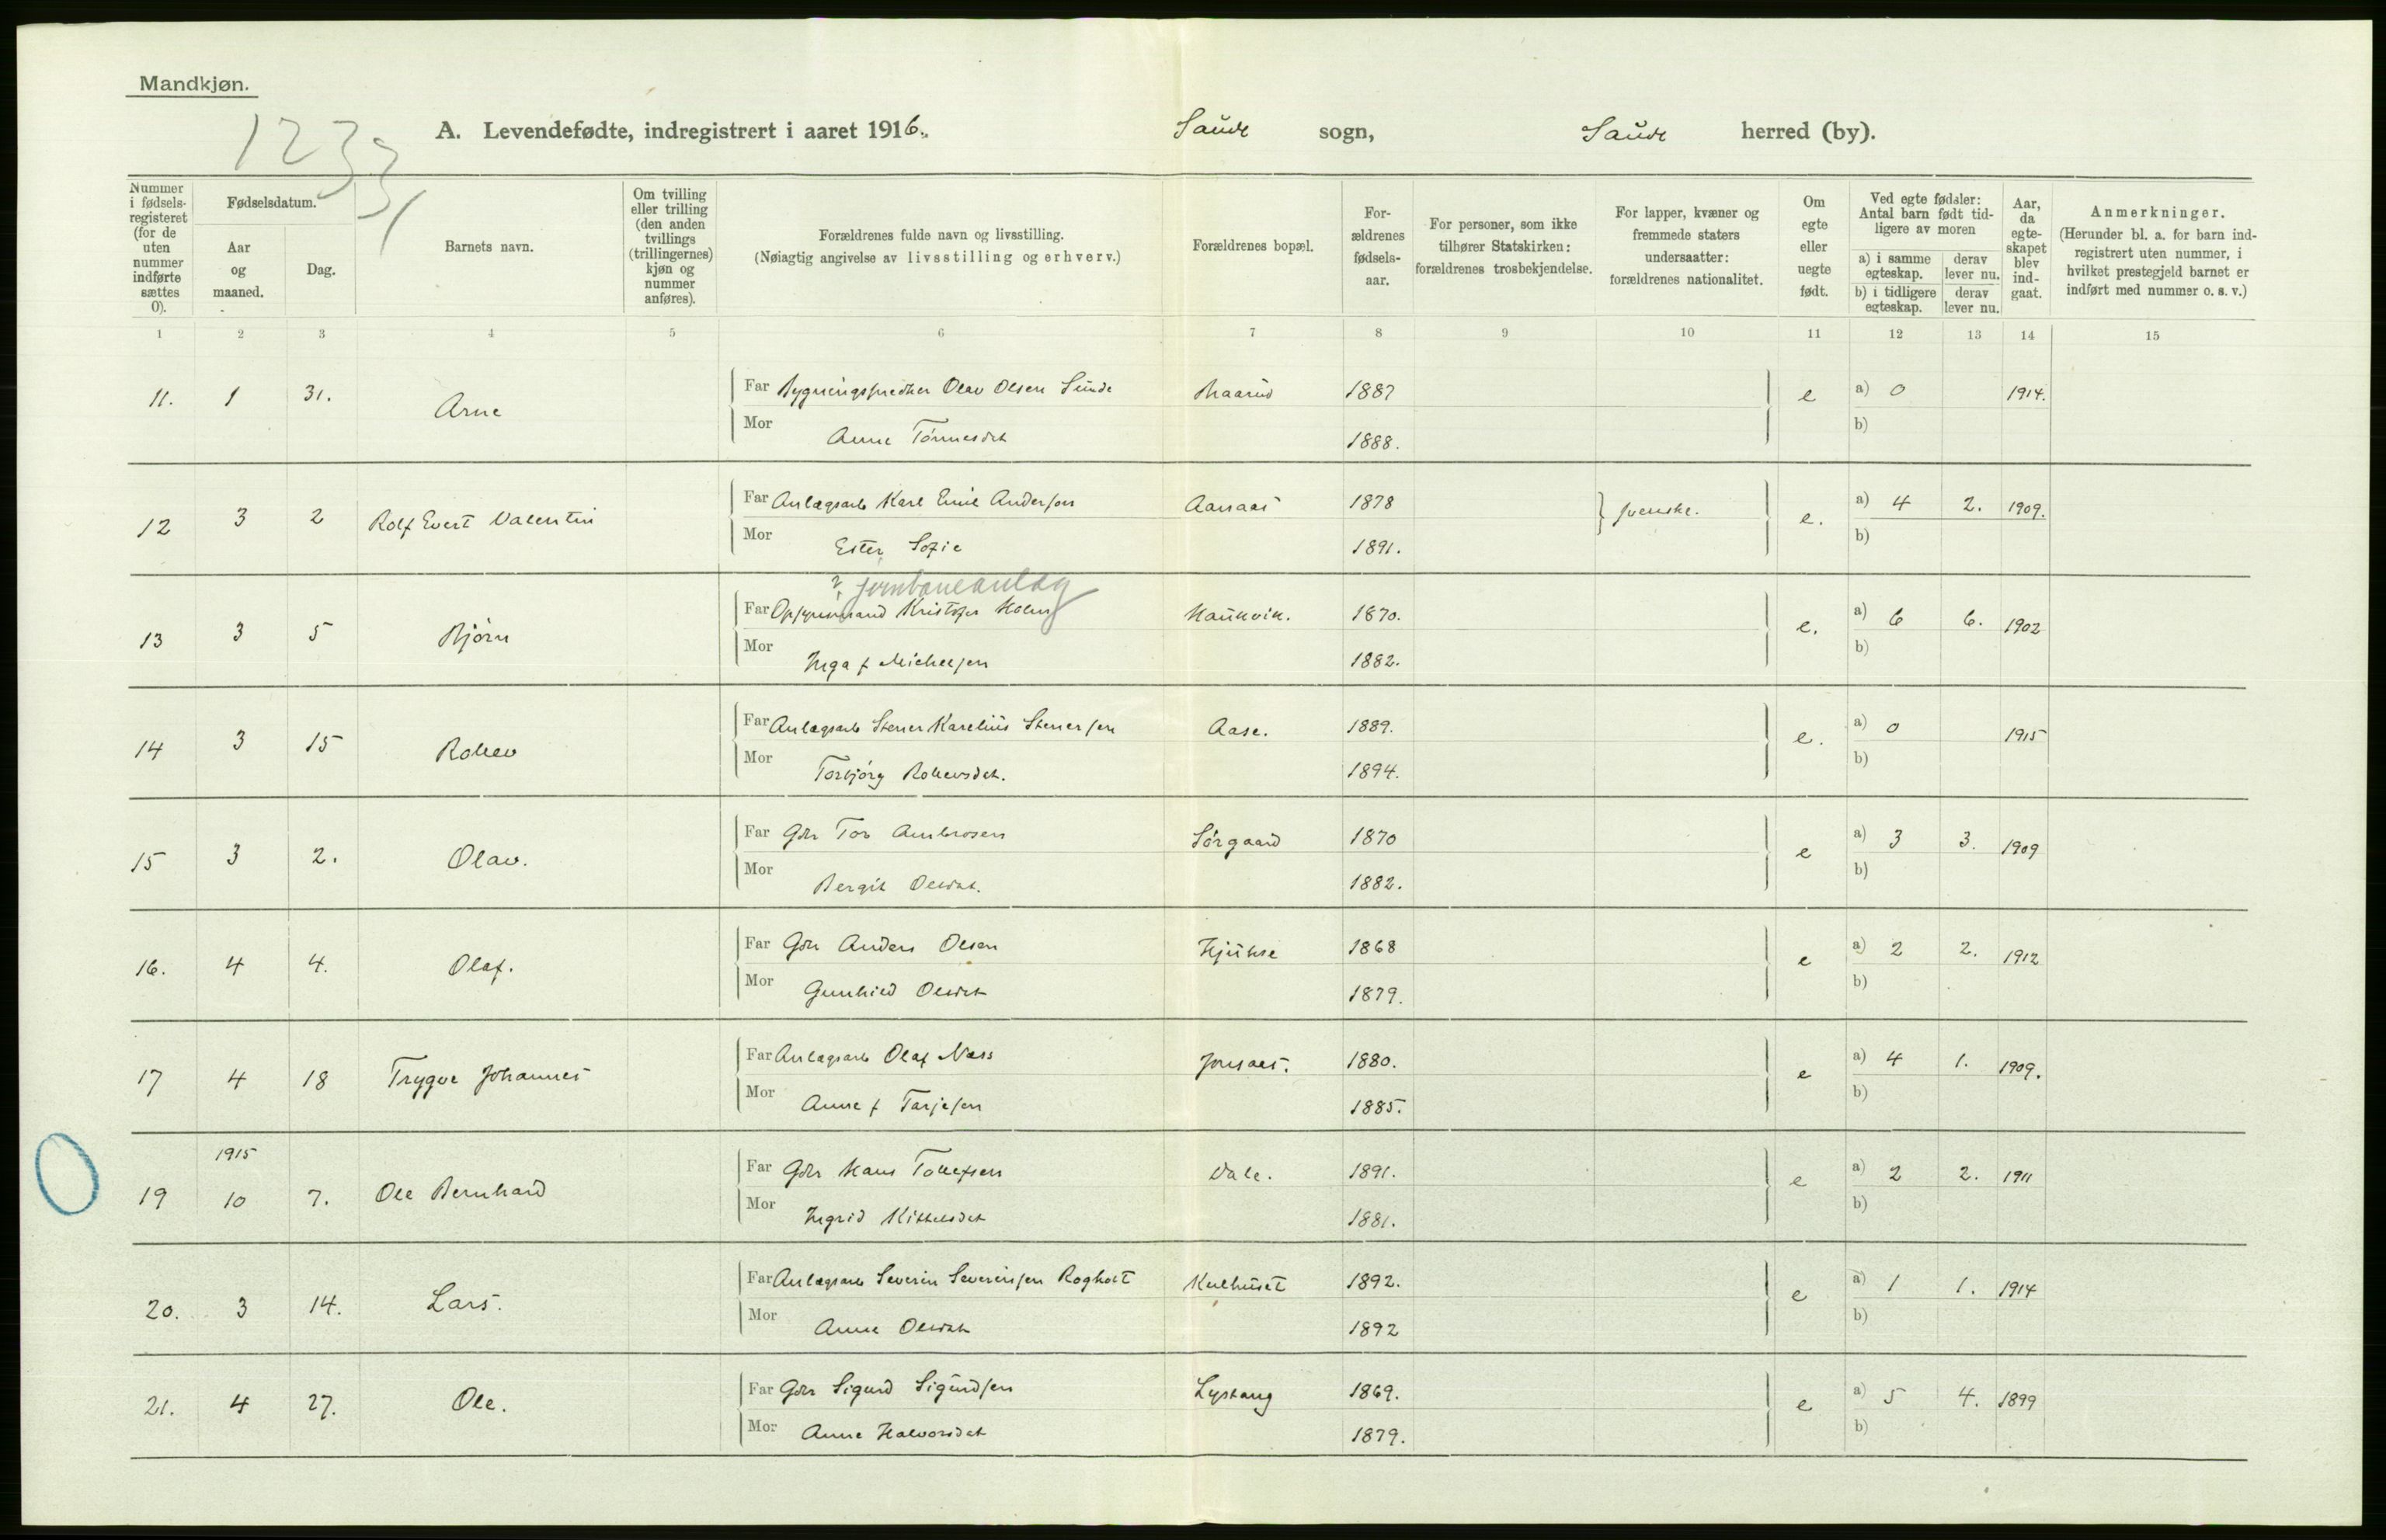 Mandkjøn.
A. Levendefødte, indregistrert i aaret 1916. Saude sogn, Saude herred (by).
1233
1
Nummer i fødsels-registeret (for de uten nummer indførte sættes 0).
Fødselsdatum.
Aar og maaned.
Dag.
Barnets navn.
Om tvilling eller trilling (den anden tvillings (trillingernes) kjøn og nummer anføres).
Forældrenes fulde navn og livsstilling.
(Nøiagtig angivelse av livsstilling og erhverv.)
Forældrenes bopæl.
For-ældrenes fødsels-aar.
For personer, som ikke tilhører Statskirken: forældrenes trosbekjendelse.
For lapper, kvæner og fremmede staters undersaatter: forældrenes nationalitet.
Om egte eller uegte født.
Ved egte fødsler: Antal barn født tid-ligere av moren
a) i samme egteskap. derav lever nu.
b) i tidligere egteskap. derav lever nu.
Aar, da egte-skapet blev ind-gaat.
Anmerkninger.
(Herunder bl. a. for barn ind-registrert uten nummer, i hvilket prestegjeld barnet er indført med nummer o. s. v.)
1 2 3 4 5 6 7 8 9 10 11 12 13 14 15
11. 1 31. Arne Far Olav Olsen Sunde 1887 e a) 0 1914.
Mor Anne Tónnesdat 1888. b)
12 3 2 Rolf Evert Valentin Far Anlægsarb Karl Emil Andersen Aanaas 1878 svenske. e. a) 4 2. 1909.
Mor Ester Sofie 1891. b)
? jernbaneanlæg
13 3 5 Bjórn Far Opsynsmand Kristofer Holm Haukvik. 1870. e. a) 6 6. 1902
Mor Inga f Michelsen 1882. b)
14 3 15 Rollev Far Anlægsarb Stener Karelius Stenersen Aase. 1889. e. a) 0 1915
Mor Torbjórg Rollevsdat. 1894. b)
15 3 2. Olav. Far Gbr Tor Ambrosen Sórgaard 1870 e a) 3 3. 1909
Mor Bergit Olsdat. 1882. b)
16. 4 4. Olaf. Far Gbr Anders Olsen Hjukse 1868 e a) 2 2. 1912
Mor Gunhild Olsdat 1879. b)
17 4 18 Trygve Johannes Far Anlægsarb Olaf Næss Jonsaas. 1880. e a) 4 1. 1909.
Mor Anne f Tarjesen 1885. b)
19 1915 10 7. Ole Bernhard Far Gbr Hans Tollefsen Dale. 1891. e a) 2 2. 1911
Mor Ingrid Kittelsdat 1881. b)
20. 3 14. Lars. Far Anlægsarb Severin Severinsen Rogholt Kulhuset 1892. e a) 1 1. 1914
Mor Anne Olsdat 1892 b)
21. 4 27. Ole. Far Gbr Sigurd Sigurdsen 1869. e a) 5 4. 1899
Mor Anne Halvorsdat 1879. b)